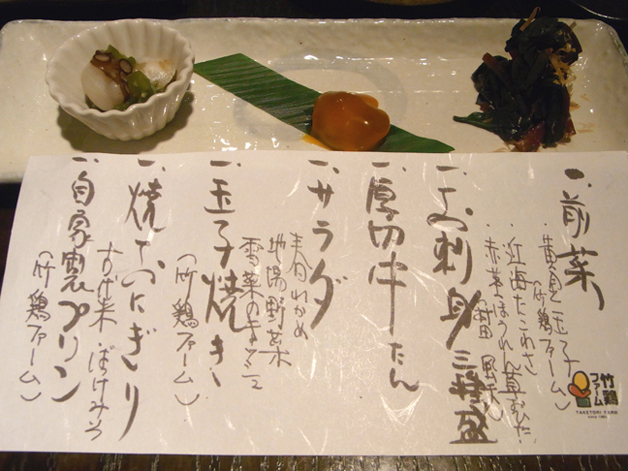 一.前菜
・黄身玉子
(竹鶏ファーム)
・近海たこわさ
・赤茎ほうれん草おひたし
一.お刺身 三種盛
一.厚切牛たん
一.サラダ
春わかめ
地場野菜
雪菜の
一.玉子焼き
(竹鶏ファーム)
一.焼きおにぎり
古代米 ばっけみそ
一.自家製プリン
(竹鶏ファーム)
竹鶏
ファーム
TAKETORI FARM